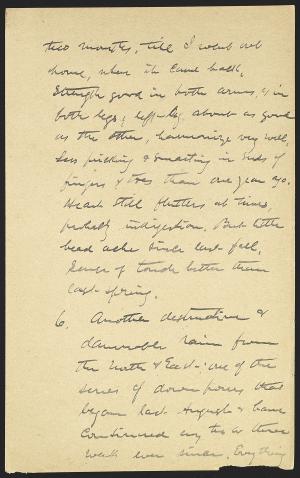 two months, till I went out
home, when it came back.
Strength good in both arms, & in
both legs; left leg about as good
as the other, harmonize very well,
less pricking & smarting in ends of
fingers & toes than one year ago.
Heart still flutters at times,
probably indigestion. But little
head ache since last fall.
Sense of touch better than
last spring.
6. Another destructive &
damnable rain from
the North & East: one of the
series of down pours that
began last August & have
continued every two or three
week ever since. Everything